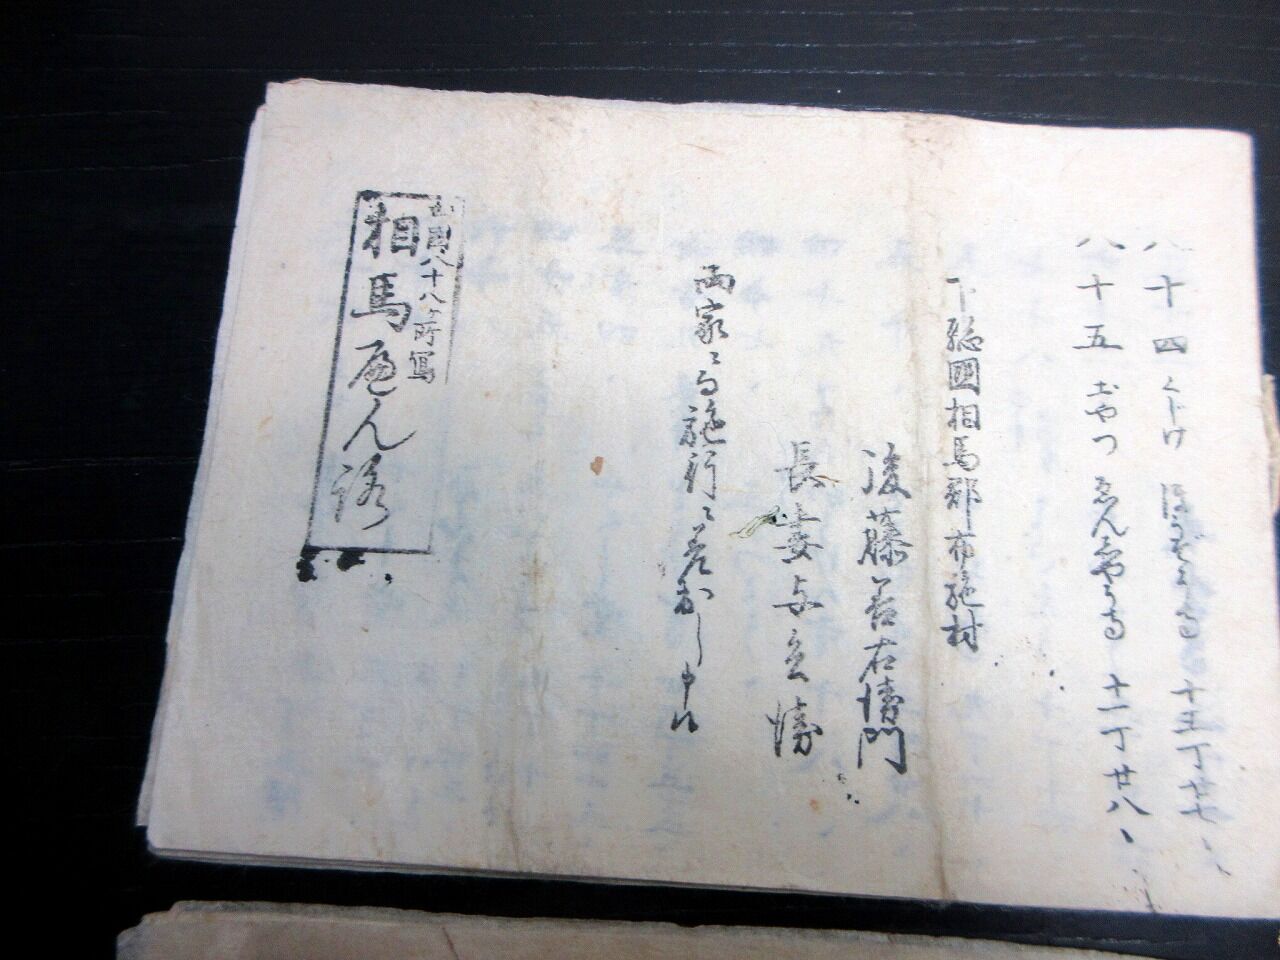 八十四 くじけ ほうぞうち 十五丁廿七、
八十五 おやつ ゑんみやうち 十一丁廿八、
下総國相馬郡布施村
後藤善右衛門
長妻与兵衛
両家ゟ施行ニ差出し申候
四國八十八ヶ所寫
相馬へん路